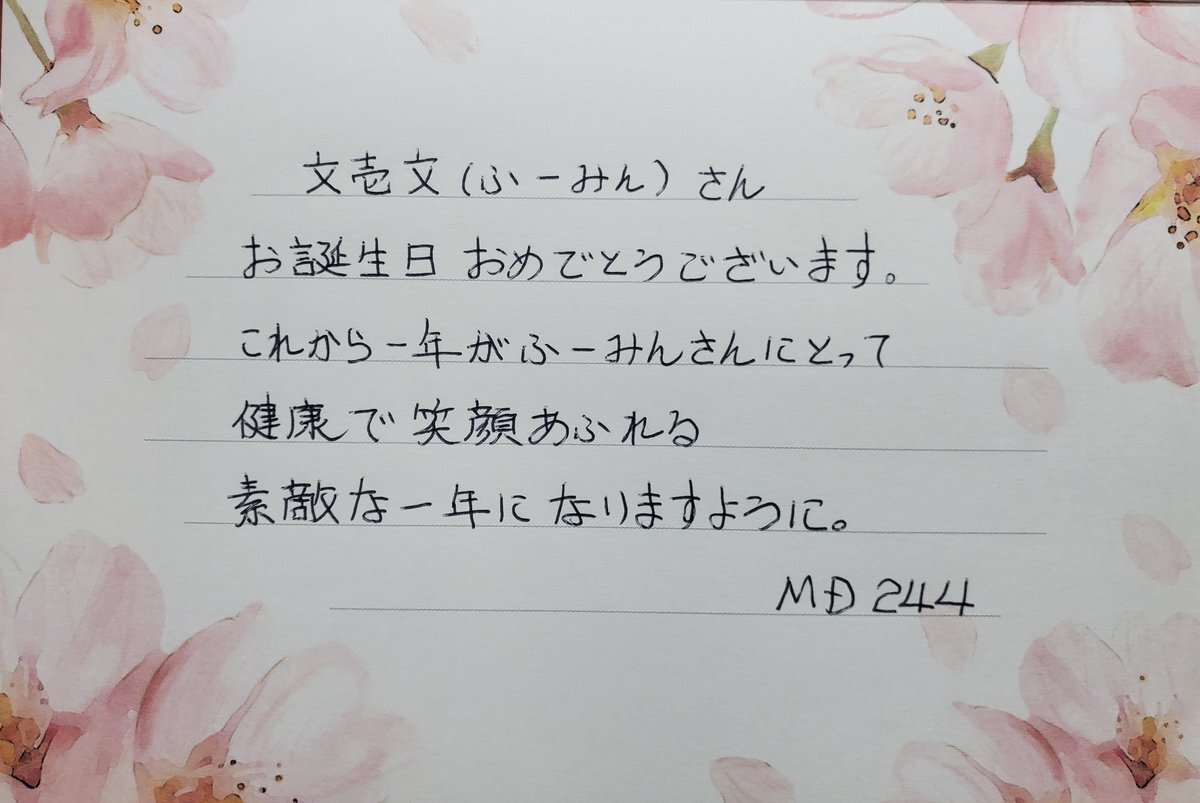 文壱文(ふーみん)さん
お誕生日 おめでとうございます。
これから一年がふーみんさんにとって
健康で笑顔あふれる
素敵な一年になりますように。
MĐ 244